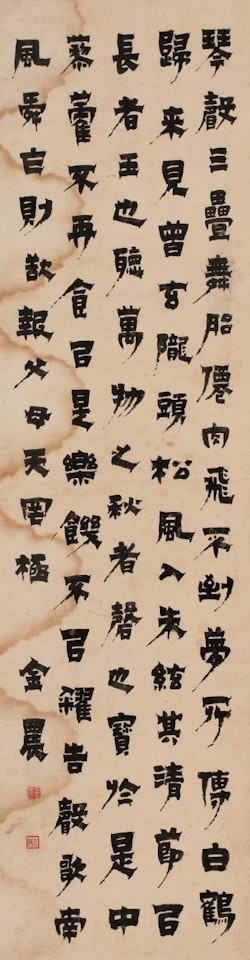 琴聲三疊舞胎僊肉飛不到夢所傳白鶴
歸來見曾玄隴頭松風入朱絃其清節㠯
長者玉也聽萬物之秋者磬也寶於是中
藜藿不再食㠯是樂饑不㠯糴告聲歌南
風舜白則欲報父母天罔極 金農